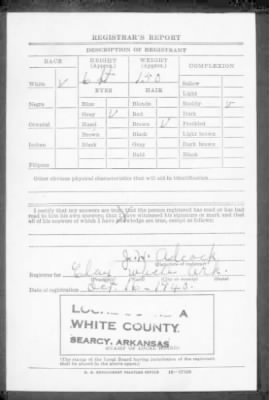 REGISTRAR'S REPORT
DESCRIPTION OF REGISTRANT
RACE HEIGHT (Approx.) WEIGHT (Approx.) COMPLEXION
White V 6 ft 140 Sallow
EYES HAIR Light
Negro Blue Blonde Ruddy V
Gray V Red Dark
Oriental Hazel Brown V Freckled
Brown Black Light brown
Indian Black Gray Dark brown
Bald Black
Filipino
Other obvious physical characteristics that will aid in identification
I certify that my answers are true; that the person registered has read or has had
read to him his own answers; that I have witnessed his signature or mark and that
all of his answers of which I have knowledge are true, except as follows:
J. H. Adcock
(Signature of registrar)
Registrar for Clay White Ark.
(Precinct) (City or county) (State)
Date of registration Oct 16 - 1940.
WHITE COUNTY
SEARCY, ARKANSAS
(STAMP OF LOCAL BOARD)
(The stamp of the Local Board having jurisdiction of the registrant
shall be placed in the above space.)
U. S. GOVERNMENT PRINTING OFFICE